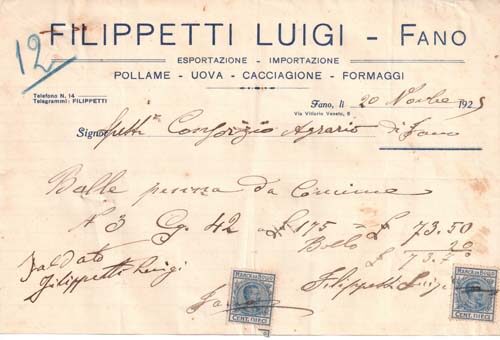 12
FILIPPETTI LUIGI - FANO
ESPORTAZIONE - IMPORTAZIONE
POLLAME - UOVA - CACCIAGIONE - FORMAGGI
Telefono N. 14
Telegrammi: FILIPPETTI
Fano, lì 20 Novbre 1925
Via Vittorio Veneto, 8
Signor Spett. Consorzio Agrario di Fano
Balle penna da concime
N 3 Cg. 42 a £ 175 £ 73.50
Bollo £ 20
£ 73.70
Saldato
Filippetti Luigi
Filippetti Luigi
CENT. DIECI
CENT. DIECI